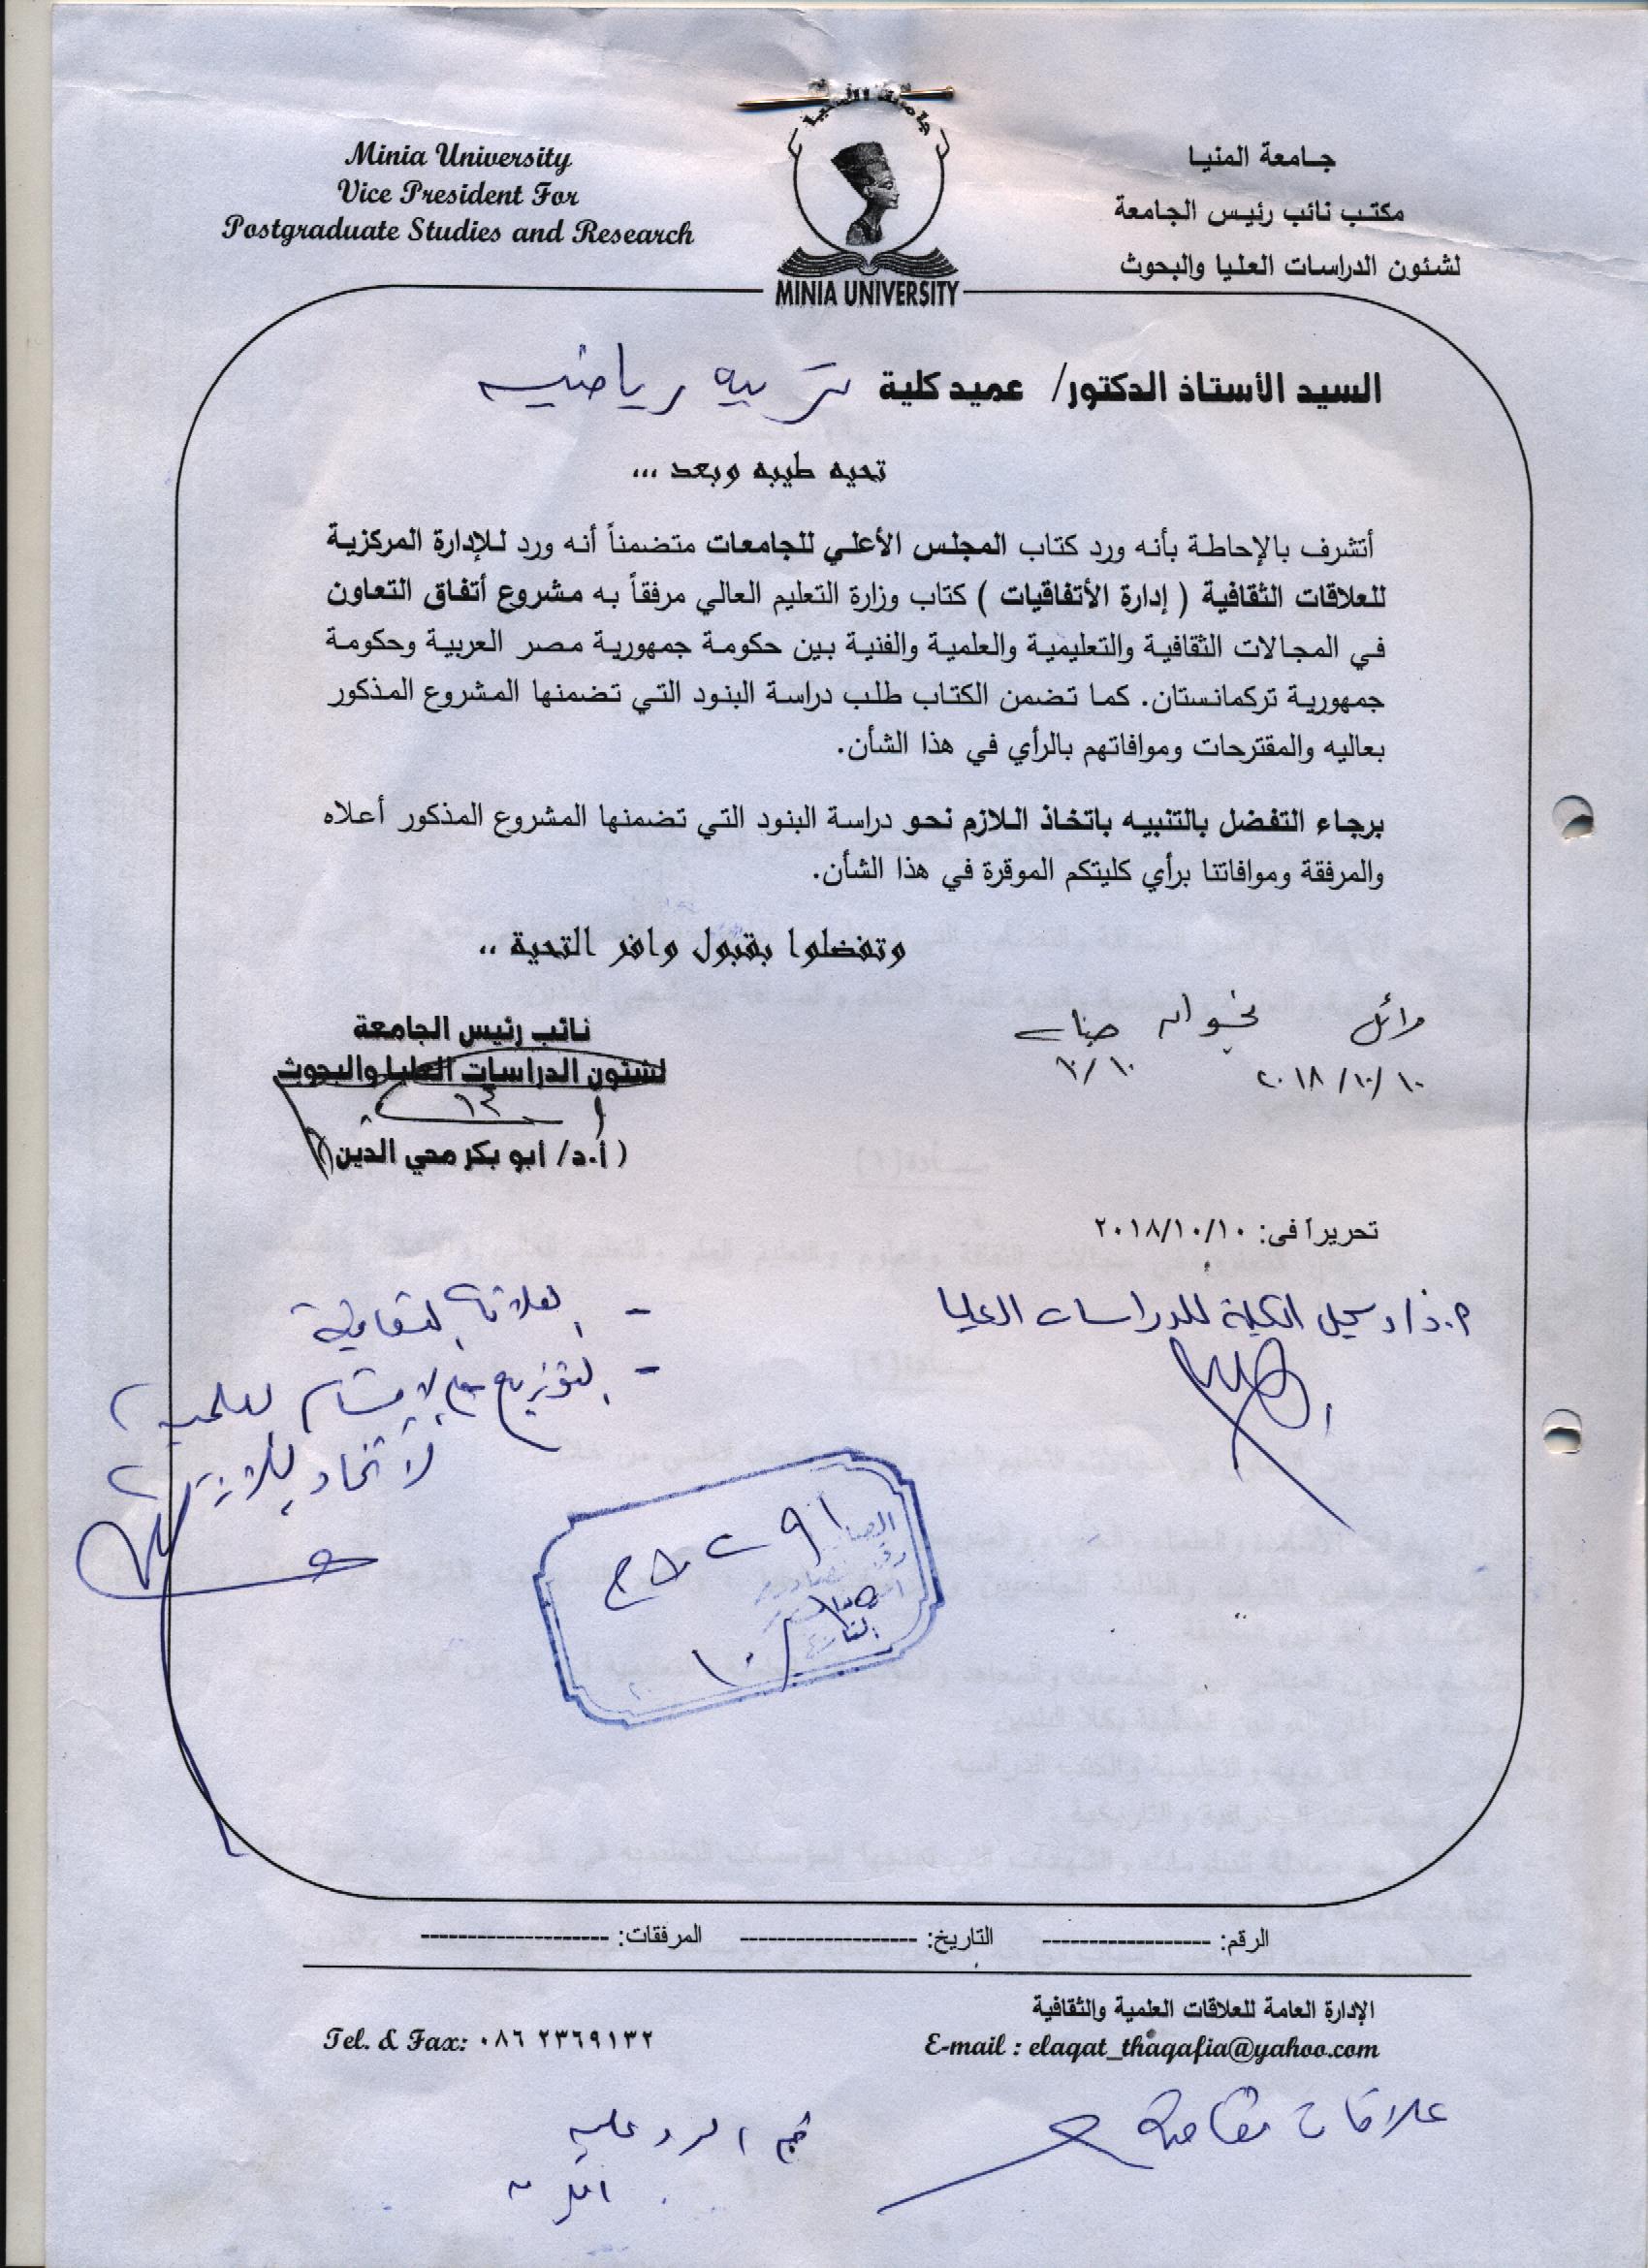 جامعة المنيا
Minia University
جامعة المنيا
Vice President For
مكتب نائب رئيس الجامعة
Postgraduate Studies and Research
لشئون الدراسات العليا والبحوث
MINIA UNIVERSITY
السيد الأستاذ الدكتور/ عميد كلية تربيه رياضيه
تحيه طيبه وبعد ...
أتشرف بالإحاطة بأنه ورد كتاب المجلس الأعلي للجامعات متضمناً أنه ورد للإدارة المركزية
للعلاقات الثقافية ( إدارة الأتفاقيات ) كتاب وزارة التعليم العالي مرفقاً به مشروع أتفاق التعاون
في المجالات الثقافية والتعليمية والعلمية والفنية بين حكومة جمهورية مصر العربية وحكومة
جمهورية تركمانستان. كما تضمن الكتاب طلب دراسة البنود التي تضمنها المشروع المذكور
بعاليه والمقترحات وموافاتهم بالرأي في هذا الشأن.
برجاء التفضل بالتنبيه باتخاذ اللازم نحو دراسة البنود التي تضمنها المشروع المذكور أعلاه
والمرفقة وموافاتنا برأي كليتكم الموقرة في هذا الشأن.
وتفضلوا بقبول وافر التحية ..
وائل
٢٠١٨/١٠/١٠ ١٠/١٠
نائب رئيس الجامعة
لشئون الدراسات العليا والبحوث
(أ.د/ أبو بكر محي الدين)
تحريراً فى: ٢٠١٨/١٠/١٠
أ.د/ وكيل الكلية للدراسات العليا
- العلاقات الثقافية
- للتوزيع على الاقسام العلمية
لاتخاذ اللازم
التاريخ
الرقم: ------------------ التاريخ: ------------------- المرفقات: --------------------
الإدارة العامة للعلاقات العلمية والثقافية
E-mail : elaqat_thaqafia@yahoo.com
Tel. & Fax: ٠٨٦ ٢٣٦٩١٣٢
علاقات ثقافية
تم الرد عليه